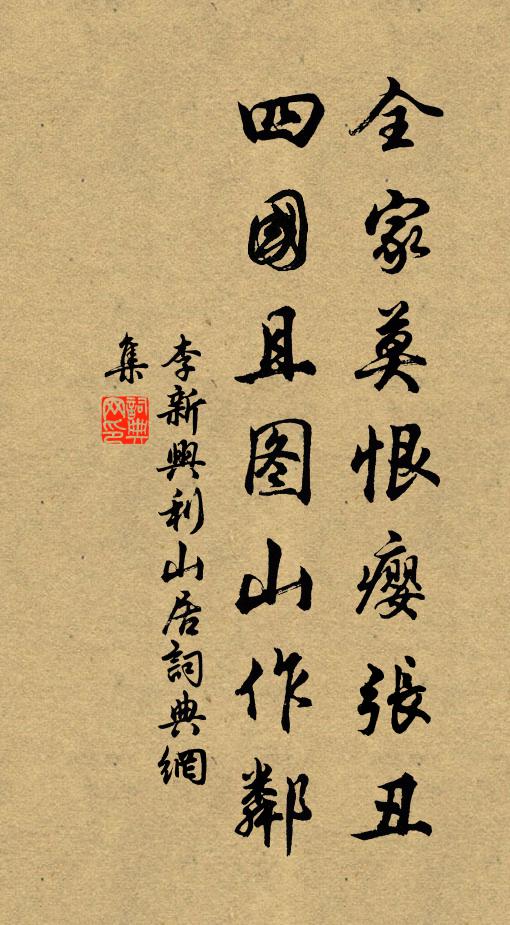 全家莫恨瘿張丑
四國且图山作鄰
李新興利山居詞典網
集
詞典
网印